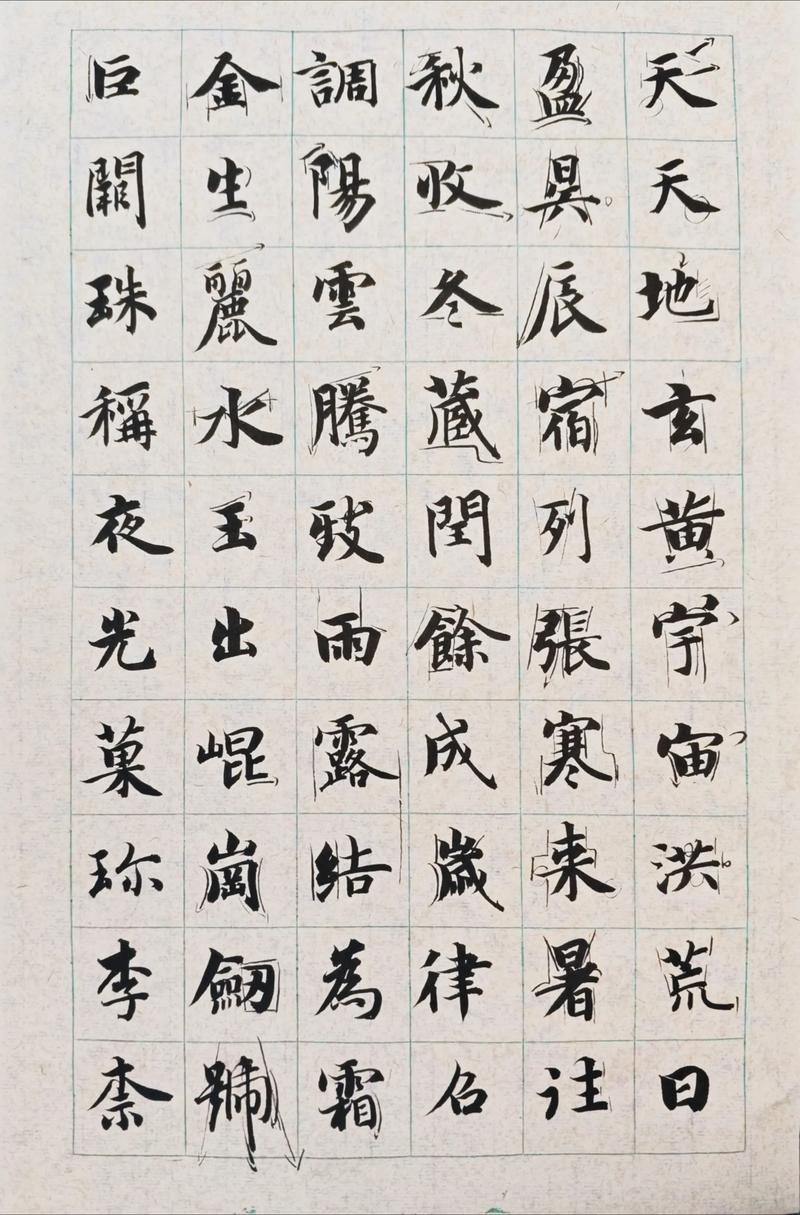 天天地玄黄宇宙洪荒日
盈昃辰宿列張寒来暑往
秋收冬蔵閏餘成歲律召
調陽雲騰致雨露結為霜
金生麗水玉出崐崗劒號
巨闕珠稱夜光菓珎李柰